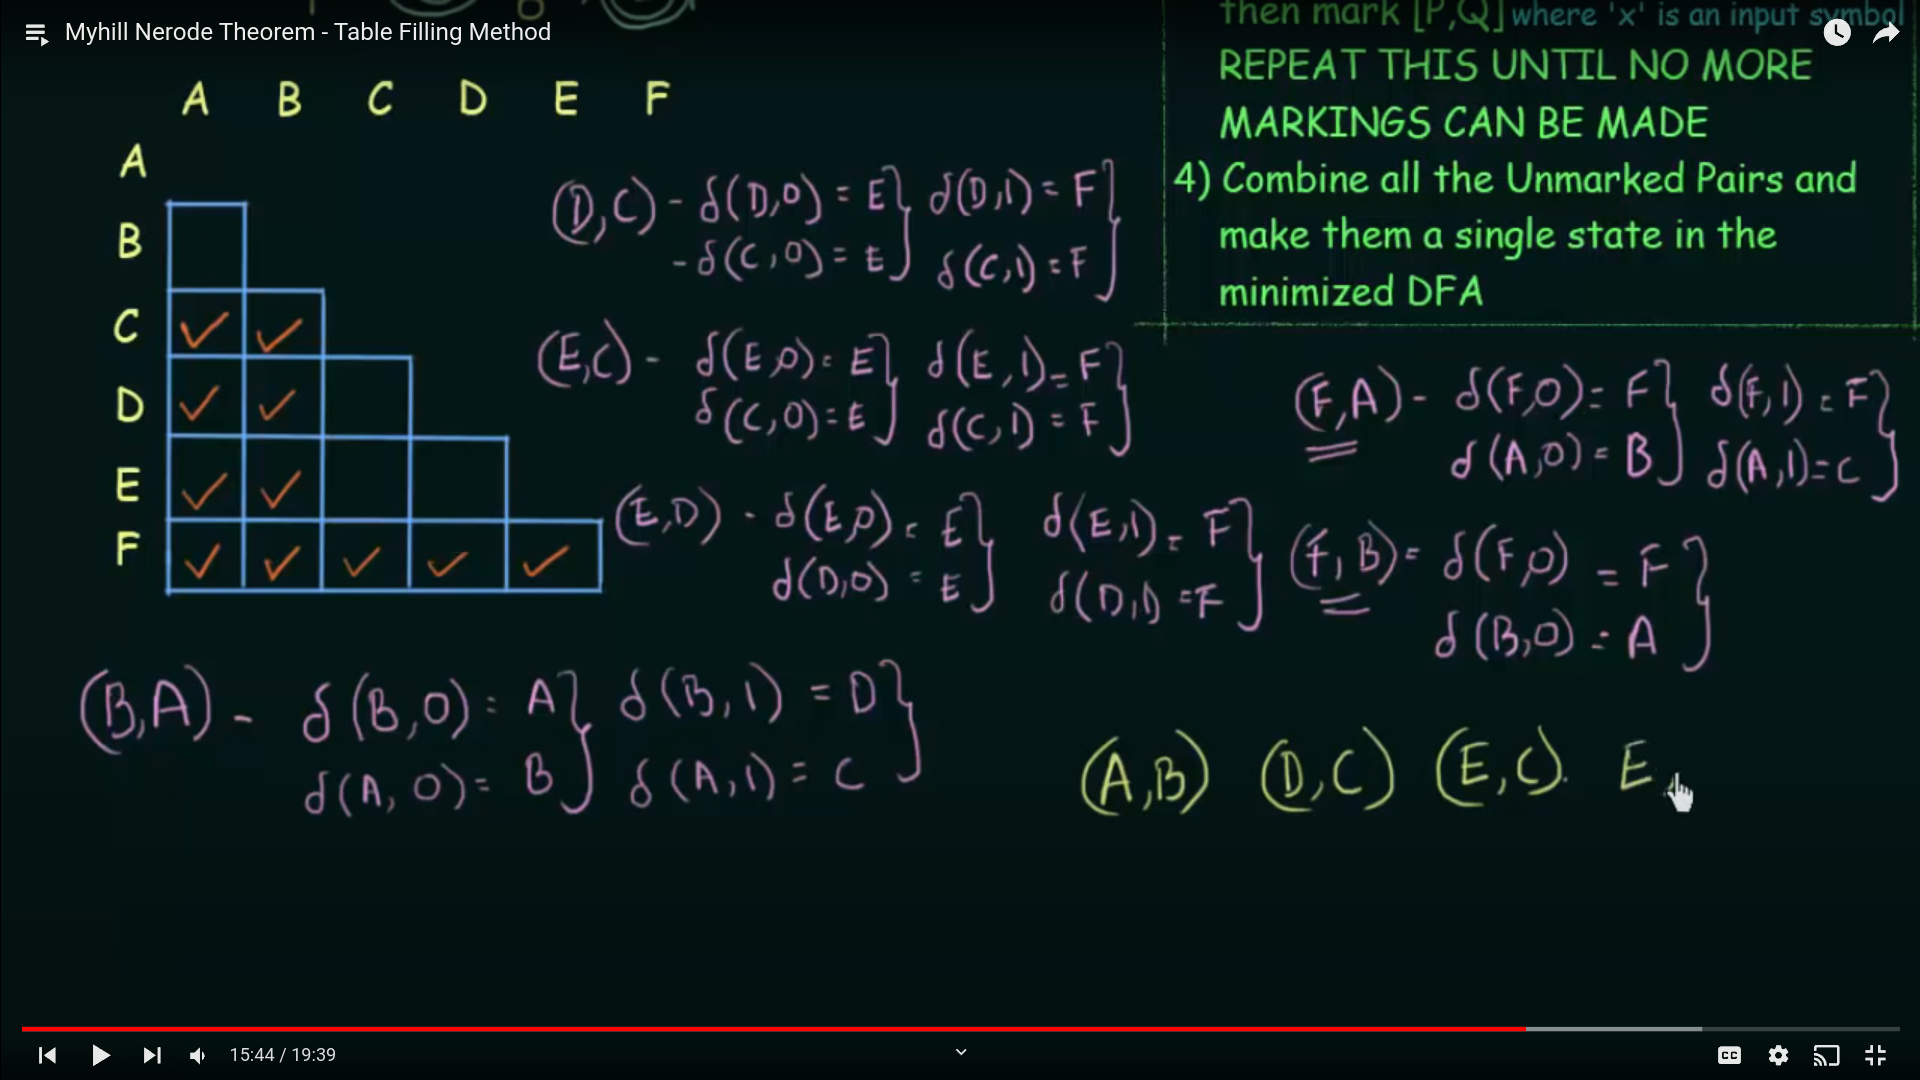 Myhill Nerode Theorem - Table Filling Method
then mark [P,Q] where 'x' is an input symbol
REPEAT THIS UNTIL NO MORE
MARKINGS CAN BE MADE
4) Combine all the Unmarked Pairs and
make them a single state in the
minimized DFA
A B C D E F
A
B
C ✓ ✓
D ✓ ✓
E ✓ ✓
F ✓ ✓ ✓ ✓ ✓
(D,C) - δ(D,0) = E} δ(D,1) = F}
- δ(C,0) = E δ(C,1) = F
(E,C) - δ(E,0) = E} δ(E,1) = F}
δ(C,0) = E δ(C,1) = F
(E,D) - δ(E,0) = E} δ(E,1) = F}
δ(D,0) = E δ(D,1) = F
(F,A) - δ(F,0) = F} δ(F,1) = F}
δ(A,0) = B δ(A,1) = C
(F,B) = δ(F,0) = F}
δ(B,0) = A
(B,A) - δ(B,0) = A} δ(B,1) = D}
δ(A,0) = B δ(A,1) = C
(A,B) (D,C) (E,C). E
15:44 / 19:39
CC